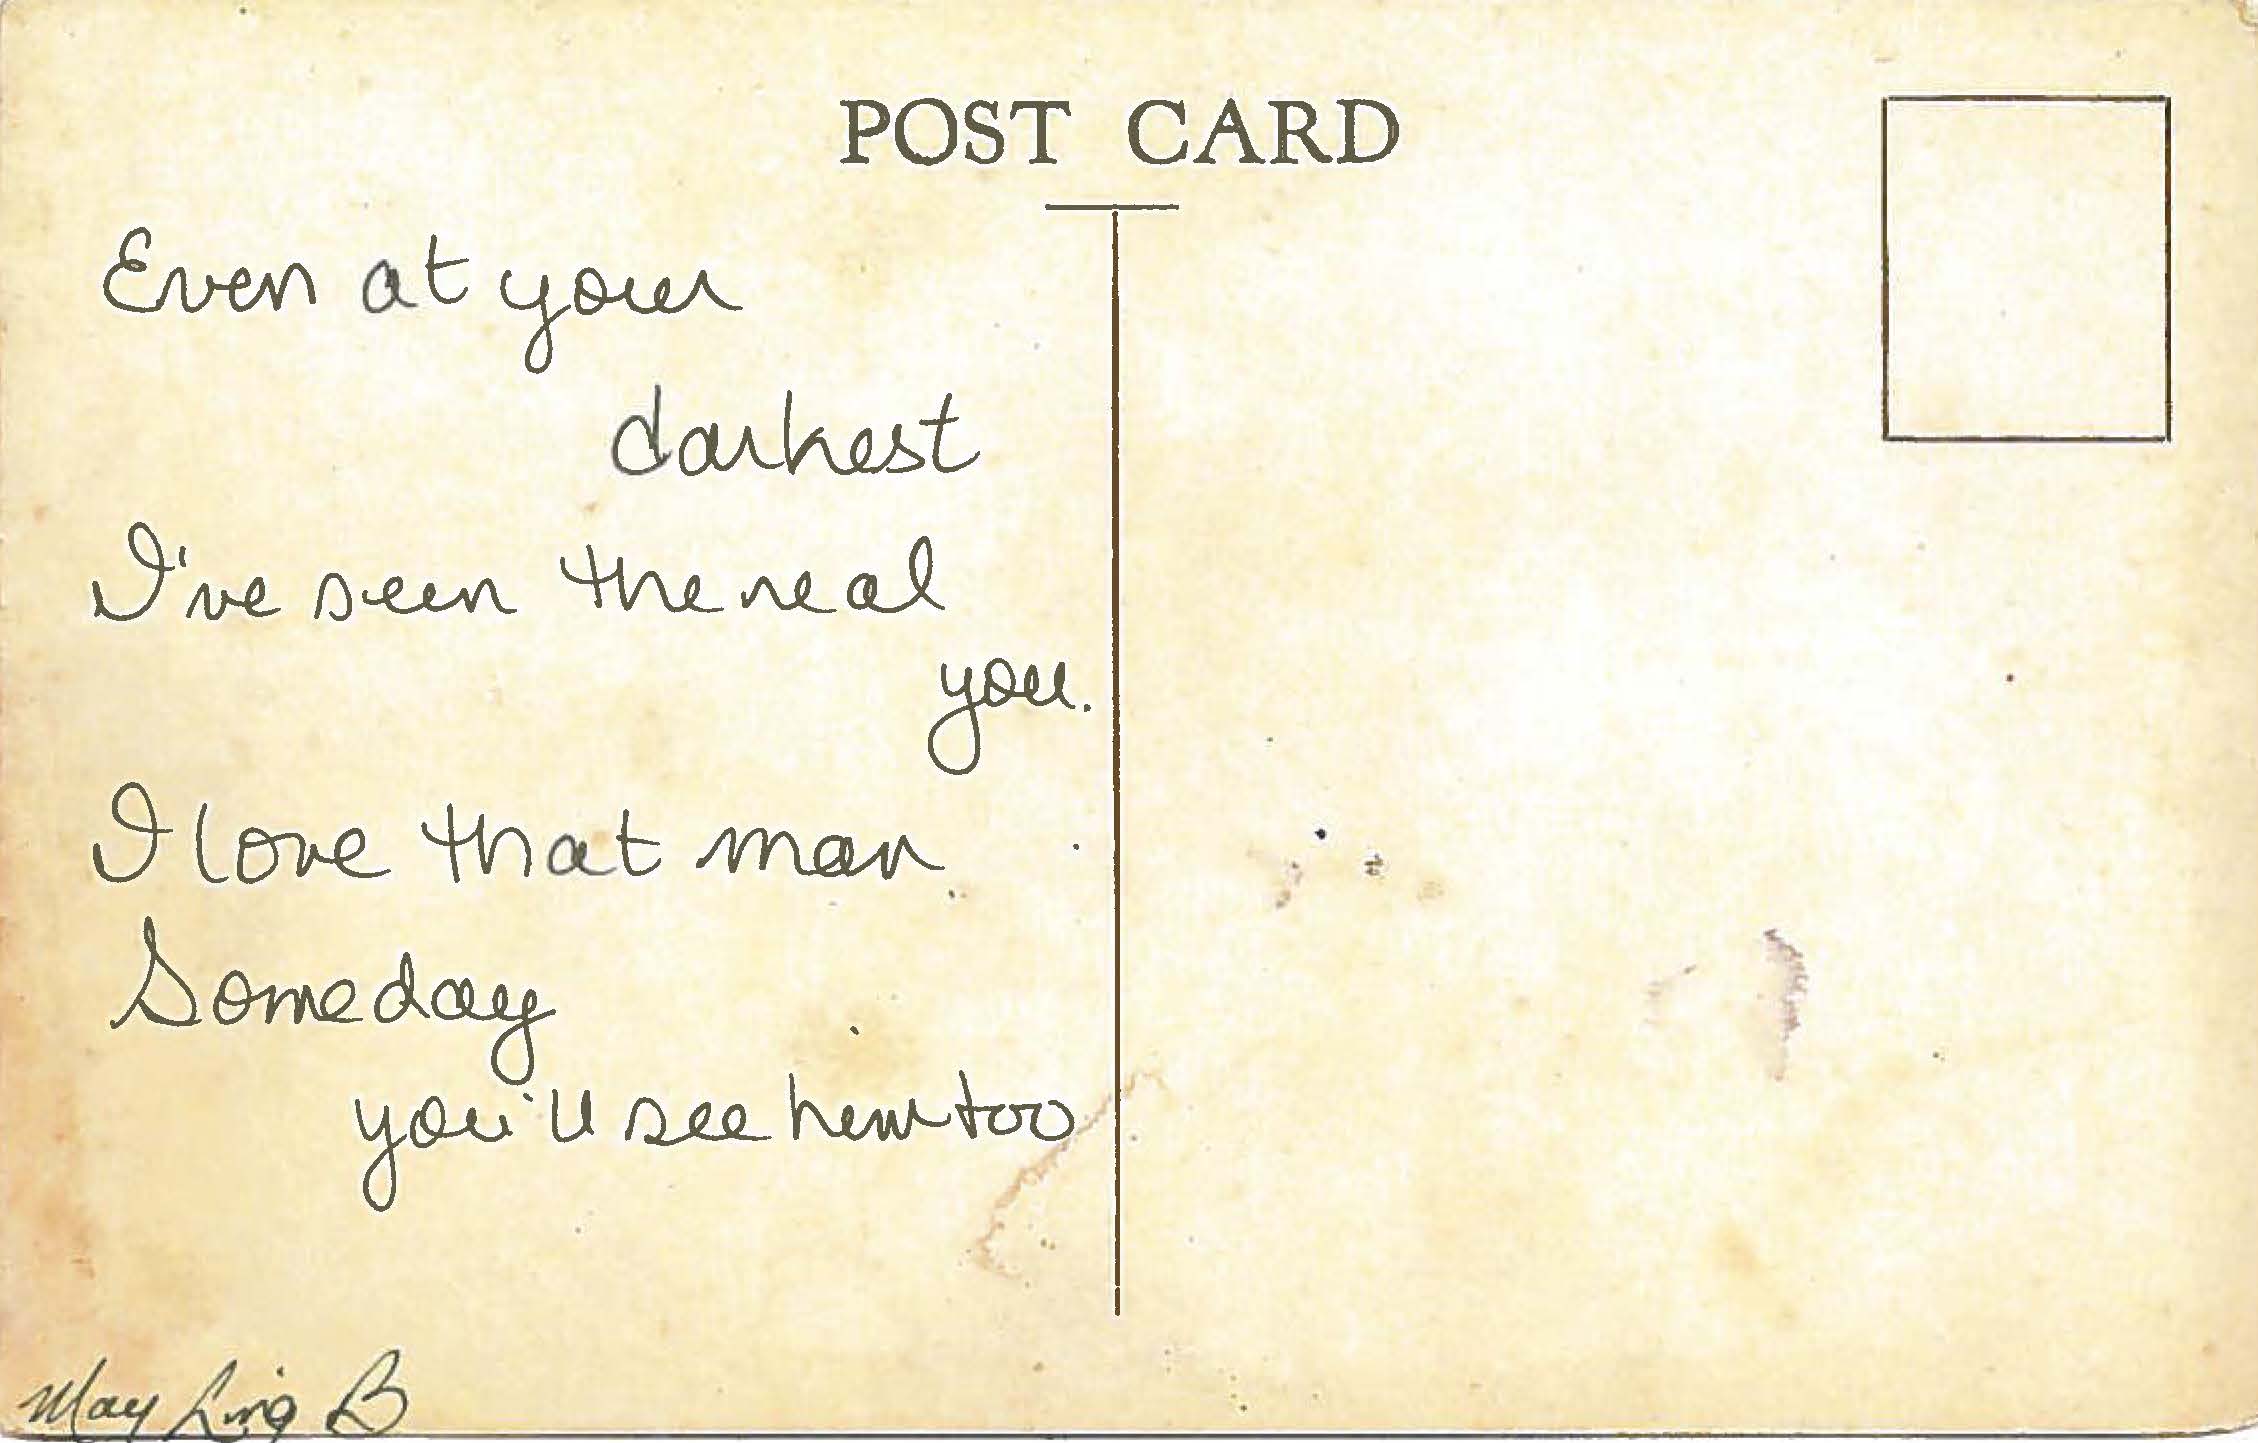 POST CARD
Even at your
darkest
I've seen the real
you.
I love that man
Someday
you'll see him too
May Ling B